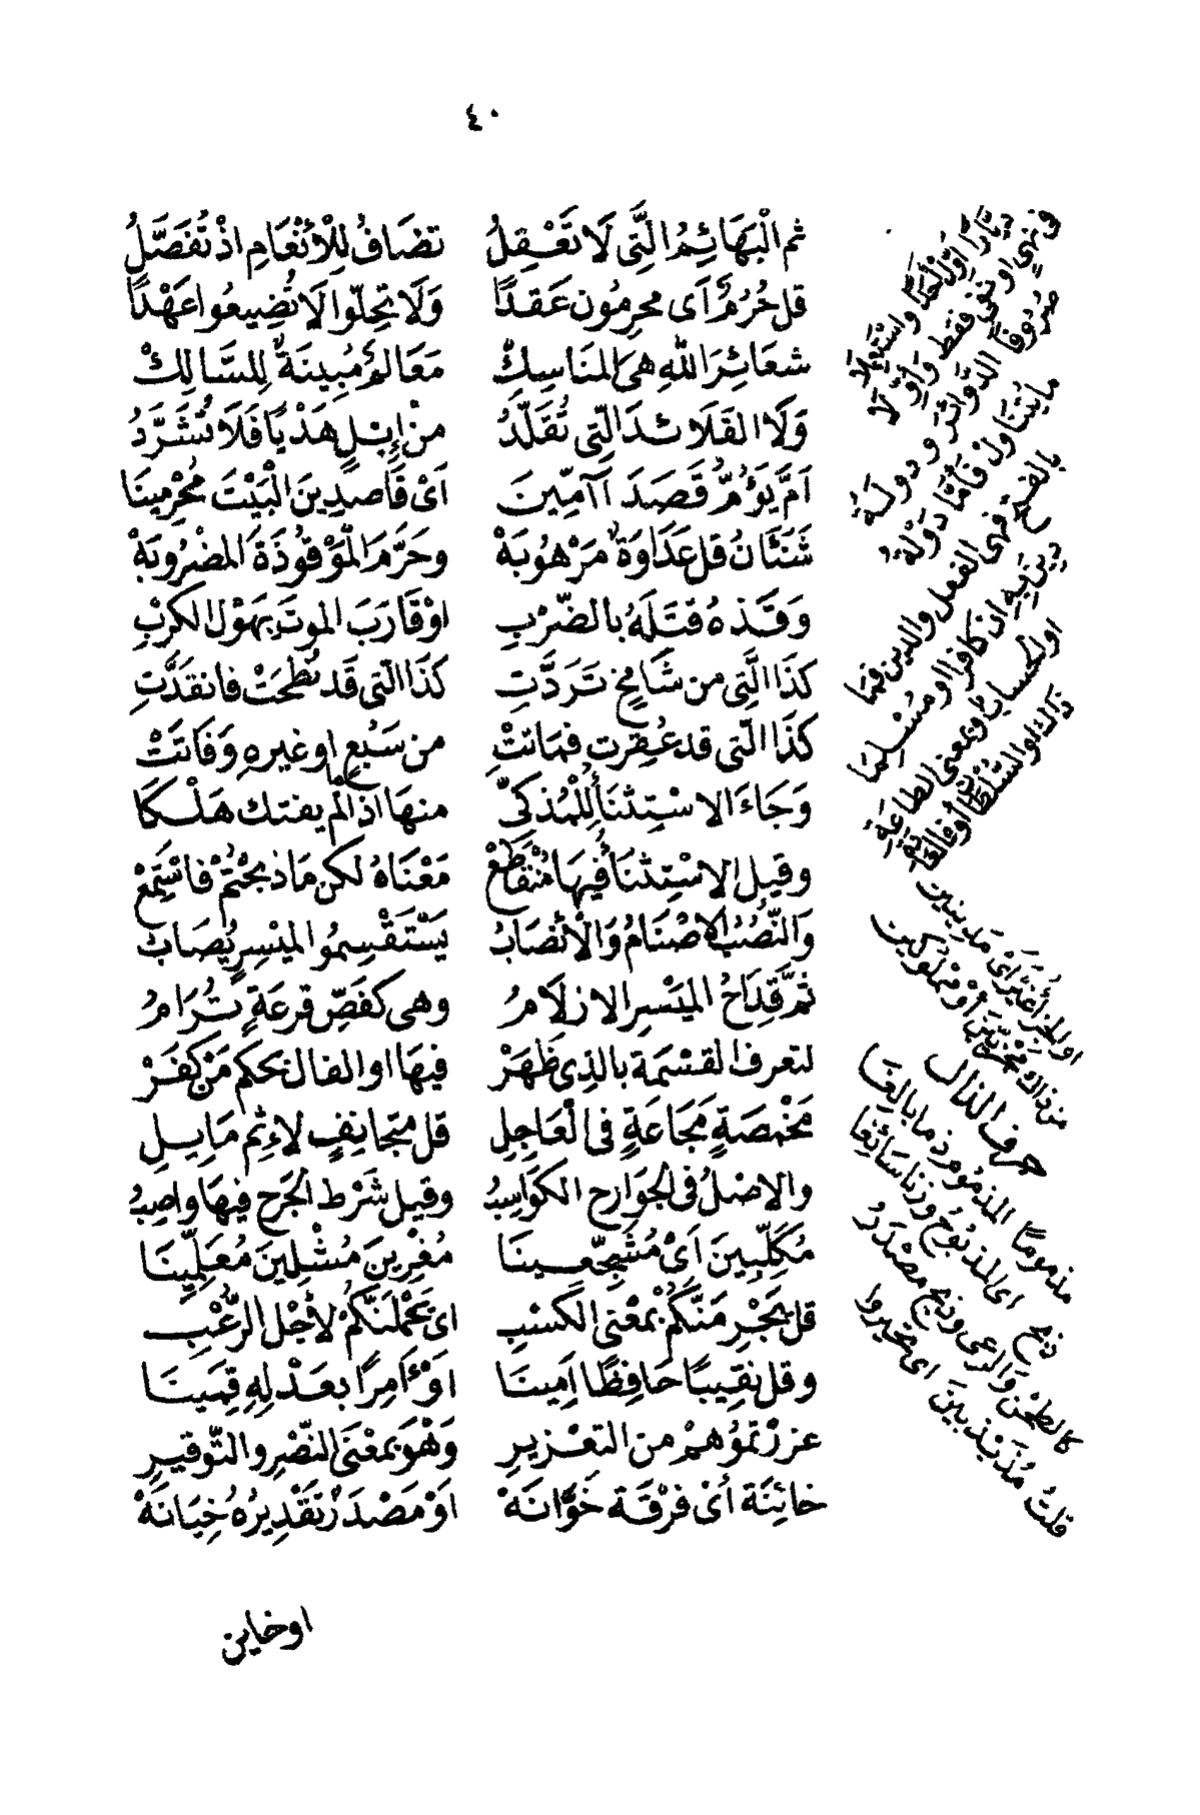 ٤٠
ثم الْبَهَائِمُ الَّتِى لَا تَعْقِلُ تضَافُ لِلْأَنْعَامِ اذْ تُفَصَّلُ
قل حُرُمٌ اَى محرِمُون عَقدًا وَلَا تحِلّوا لَا تُضِيعُوا عَهْدًا
شعَائِرَ اللهِ هىَ المنَاسِكْ مَعَالمٌ مُبِينَةٌ لِلسَّالِكْ
وَلَا القَلَائدَ الّتِى تُقَلَّدُ منْ إِبِلٍ هَدْيًا فَلَا تُشَرَّدُ
اَمَّ يَؤُمُّ قَصَدَ آآمِّينَ اَىْ قَاصِدِينَ الْبَيْتَ مُحْرِمِينَا
شَنَئَانُ قل عَدَاوَةٌ مَرْهُوبَهْ وحَرَّمَ الْمَوْقُوذَةَ المضْرُوبَهْ
وَقَذهُ قتَلَهُ بالضّرْبِ اوْ قَارَبَ الموتَ بِهَوْلِ الكرْبِ
كَذَا الَّتِى من شَامِخٍ تَرَدَّتِ كَذَا الّتى قَد نُطِحَتْ فانقَدَّتِ
كَذَا الّتى قد عُقِرت فمَاتتْ من سَبُعٍ او غيرهِ وَفَاتَتْ
وَجَاءَ الاسْتِثنَاءُ لِلْمُذَكىّ منهَا اذَا لمْ يفتك هَلْكَا
وقيل الاسْتِثنَاءُ فيهَا مُنْقَطِعْ مَعْنَاهُ لكن مَا ذبحْتُمْ فاسْتَمِعْ
وَالنُّصُبُ الاصْنَامُ وَالْأنْصَابُ يَسْتَقْسِمُوا الميْسِرِ يُصَابُ
ثمَّ قِدَاحُ الميْسرِ الازلَامُ وهى كفَصِّ قرعَةٍ تُرَامُ
لتعرف القسْمَة بالذِى ظَهَرْ فيهَا او الفال بحكمِ مَنْ كفَرْ
مَخْمصَةٍ مَجَاعَةٍ فى الْعَاجِلِ قل متجَانِفٍ لاءِثمٍ مَايِلِ
والاصْلُ فى الجوَارح الكوَاسِبُ وقيل شَرْط الجَرحِ فيهَا واصِبُ
مُكَلِّبِينَ اَىْ مُشَجِّعينَا مُغْرِينَ مُشْلِينَ مُعَلِّمِينَا
قل يَجْرِمَنَّكُمْ بمعْنى الكَسْبِ اىْ يَحْمِلَنَّكُمْ لأجْلِ الرُّعْبِ
وقل نقِيبًا حَافِظًا اَمِينَا اوْءَامِرًا بعَدْلِهِ قِمَينَا
عزرْتموُهمْ من التعْزيرِ وَهْوَ بمعْنَى النّصْرِ والتّوقيرِ
خائِنَة أىْ فرْقَة خَوَّانَهْ اَوْ مَصْدَرٌ تَقْدِيرُهُ خِيَانَهْ
فقط
صرُوفًا الدَّوَائرَ ودولَةً
بالفتح فهى الفعل والدين فمَا
اوالحساب وبمعنى الطاعَةِ
حرف الذال
مذمومًا المذمُوم ذما بالغِا
اى المذبُوحُ
ذبح
كالطِّحْنِ وَالرعى وذبح مصْدَرُ
قلتُ مُذَبذبينَ اى تحيروا
او خاين